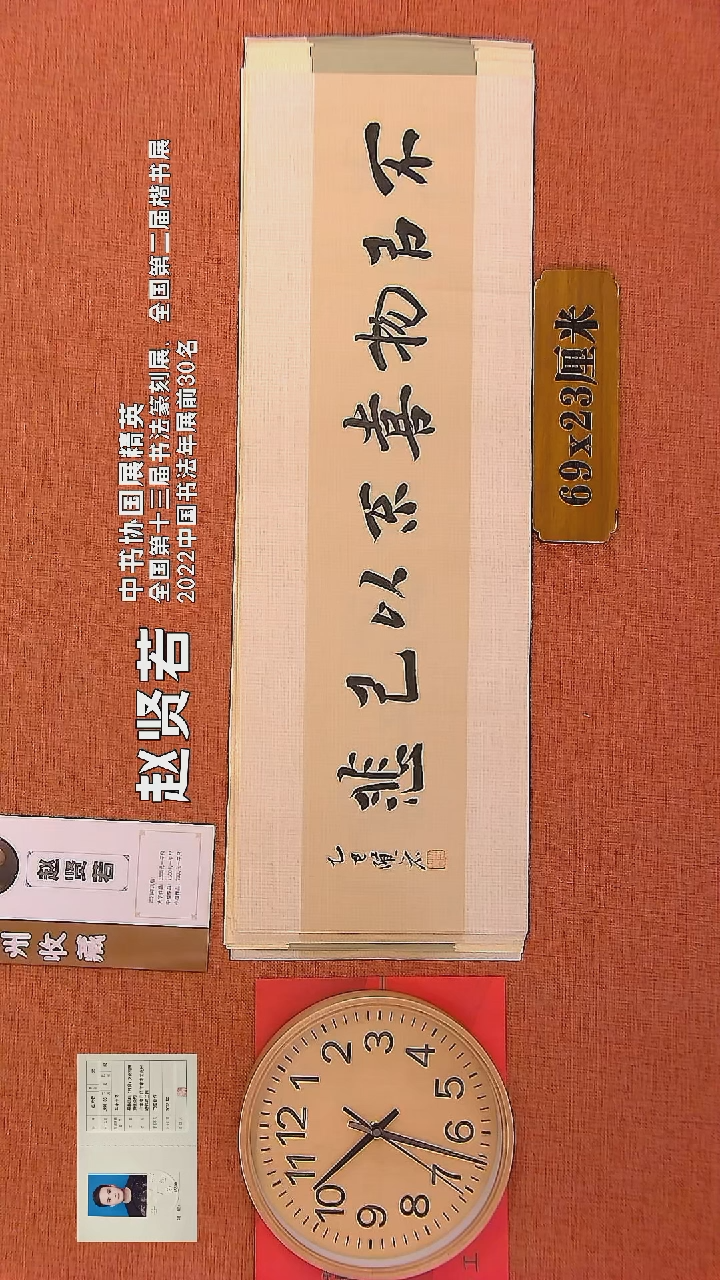 中书协国展精英
全国第十三届书法篆刻展、全国第二届楷书展
2022中国书法年展前30名
赵贤若
不以物喜不以己悲
乙巳贤若
69x23厘米
赵贤若
州收藏
12
1
2
3
4
5
6
7
8
9
10
11